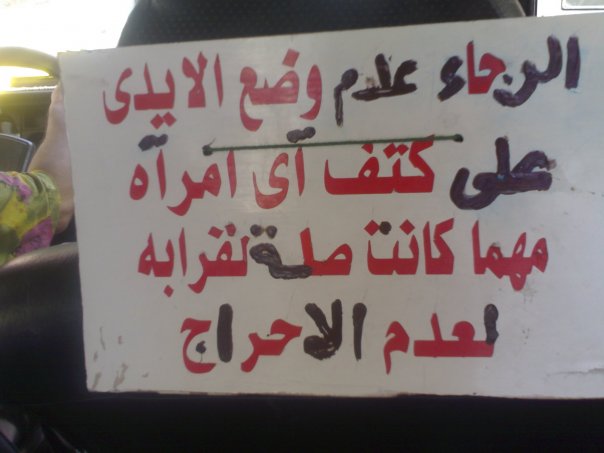 الرجاء عدم وضع الايدى
على كتف أى امرأه
مهما كانت صلة لقرابه
لعدم الاحراج